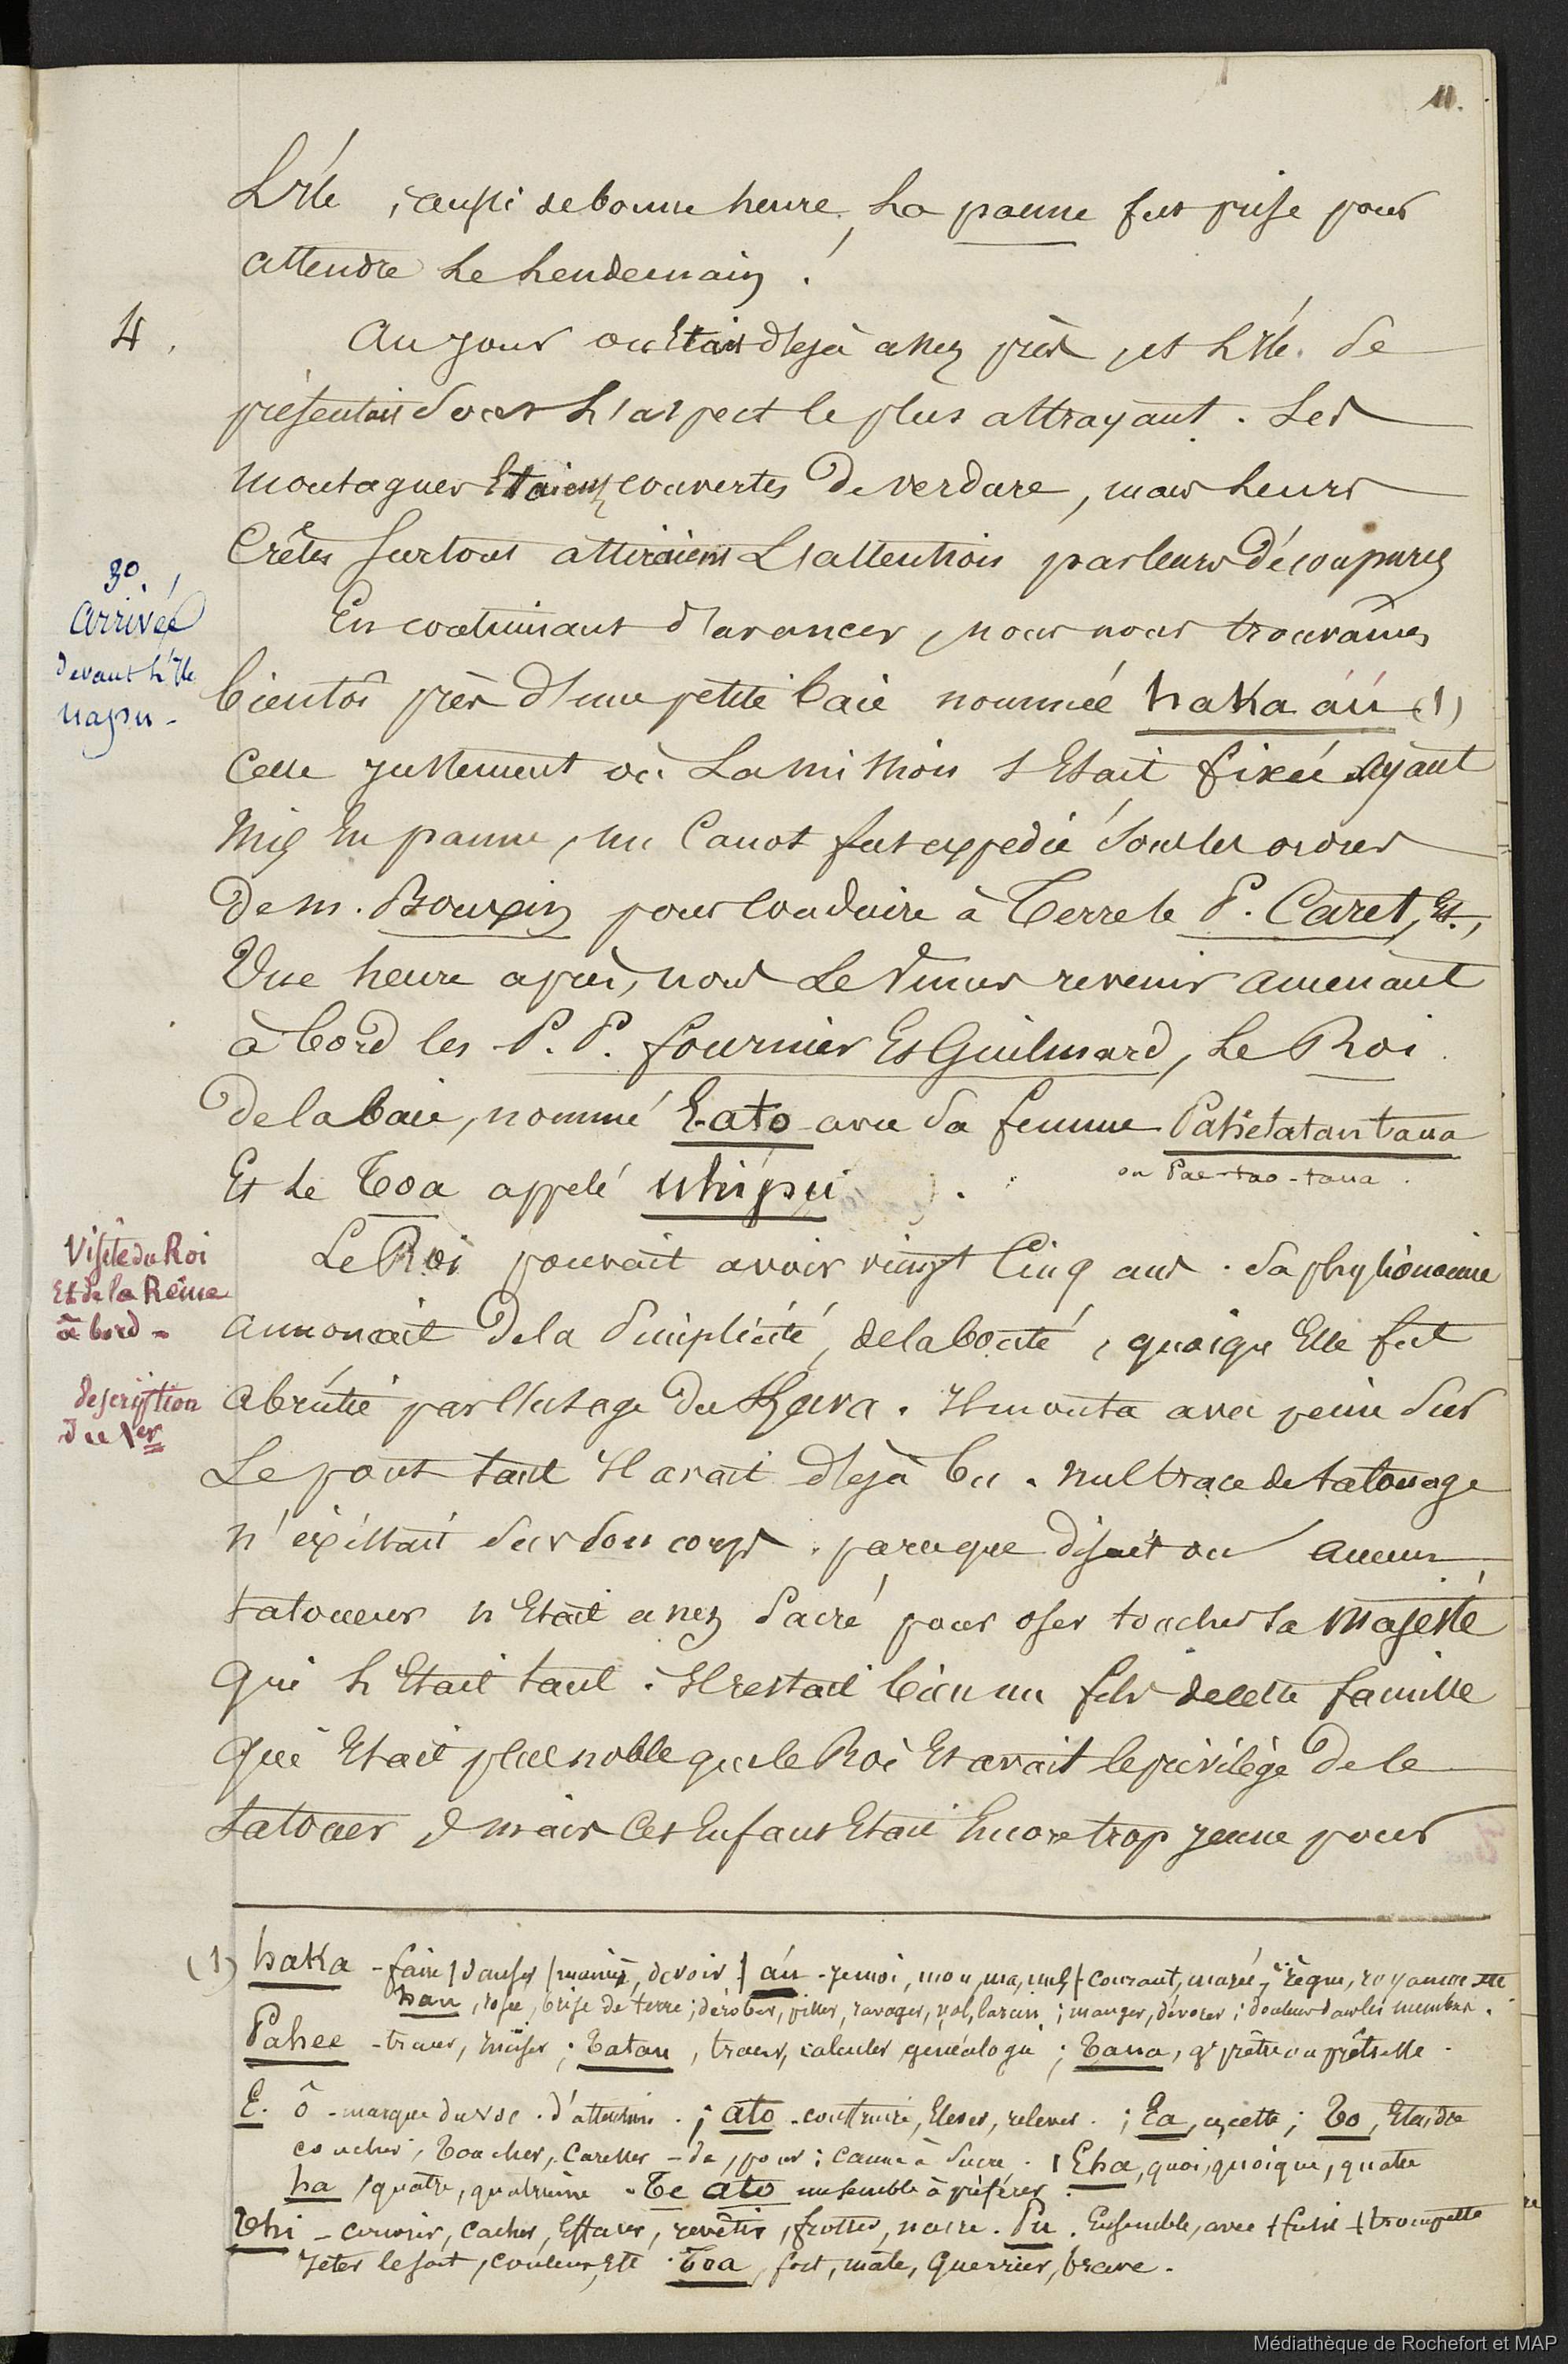 11.
L'île, aussi de bonne heure, La panne fut prise pour
attendre Le Lendemain.
4.
Au jour on Etait déjà assez près, et L'île. Se
présentait Sous L'aspect le plus attrayant. Les
montagnes Etaient couvertes De verdure, mais Leurs
Crêtes Surtout attiraient L'attention par leurs Découpures
En continuant d'avancer, nous nous trouvâmes
3º.
Arrivée
devant L'île
uapu -
bientôt près d'une petite baie nommée haka áú (1)
Celle justement où La mission s'Etait fixée Ayant
Mis En panne, un Canot fut expédié Sous les ordres
De M. Bouxin pour Conduire à Terre le P. Caret, Et,
Une heure après, nous Le Vimes revenir amenant
à bord les P. P. fournier Et Guilmard, Le Roi
De la baie, nommé E-ato avec Sa femme Pahetatau taua
ou Pae-tao-taua.
Et Le Toa appelé uhi pu.
Visite du Roi
Et de la Reine
à bord -
Le Roi pouvait avoir vingt Cinq ans. Sa physionomie
annonçait De la Simplicité, de la bonté, quoique Elle fut
description
du 1er
abrutie par l'usage Du Kava. Il monta avec peine Sur
Le pont tant Il avait déjà bu. nul trace de tatouage
n'existait Sur Son corps. parceque Disait on aucun
tatoueur n'Etait assez Sacré pour oser toucher Sa Majesté
Qui L'Etait tant. Il restait bien un fils de cette famille
Qui Etait plus noble que le Roi Et avait le privilége De le
tatouer, mais Cet Enfant Etait Encore trop jeune pour
(1) haka - faire / danser / manière, devoir / áú - je moi, mon, ma, mes / Courant, marée, règne, royaume
hau, rosée, brise de terre; dérober, piller, ravager, vol, larcin; manger, dévorer; douleur dans les membres.
Pahee - trainer, ; Tatau, tracer, calculer généalogie; Taua, gd prêtre ou prêtresse.
E. ô - marque du voc. d'attention.; ato - construire, Elever, relever.; Ea, cette; To, Etendre
coucher, Toucher, Caresser - de, pour; canne à Sucre. Eha, quoi, quoique, quatre
ha / quatre, quatrième. Te ato me semble à préférer.
Uhi - couvrir, cacher, Effacer, revêtir, frotter, nacre. Pu. Ensemble, avec + fusil + trompette
Jeter le sort, couleur, Ett. Toa, fort, mâle, Guerrier, brave.
Médiathèque de Rochefort et MAP